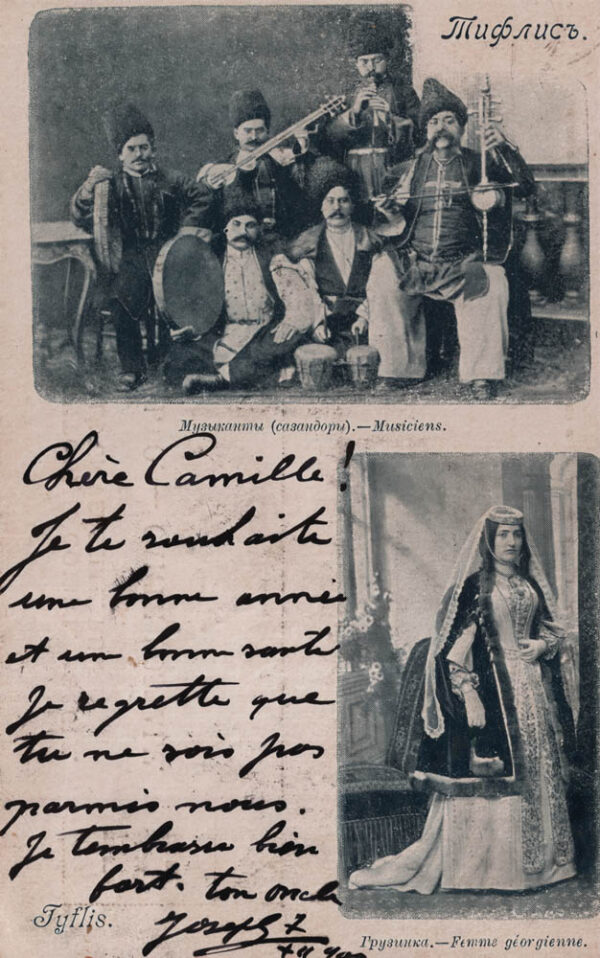 Тифлисъ.
Музыканты (сазандори).—Musiciens.
Chère Camille!
Je te souhaite
une bonne année
et un bonne santé
Je regrette que
tu ne sois pas
parmis nous.
Je t'embrasse bien
fort. ton oncle
Joseph
Tyflis.
Грузинка.—Femme géorgienne.